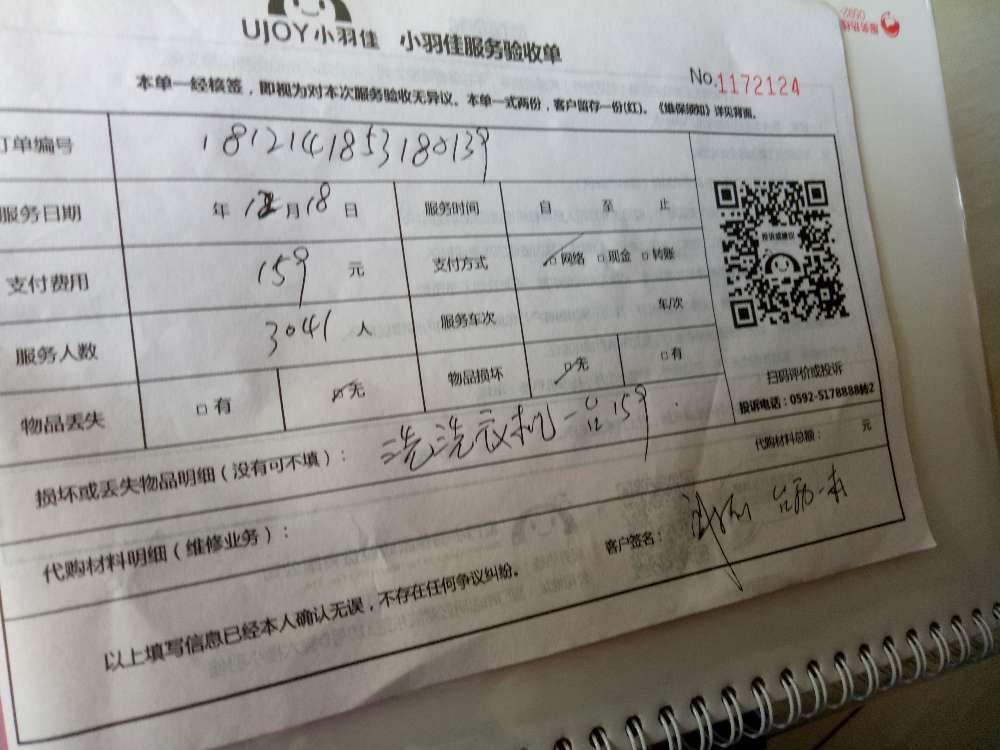 UJOY小羽佳 小羽佳服务验收单
No.1172124
本单一经核签，即视为对本次服务验收无异议。本单一式两份，客户留存一份(红)。《维保须知》详见背面。
订单编号 1812141853180139
服务日期 年 12 月 18 日 服务时间 自 至 止
支付费用 159 元 支付方式 网络 现金 转账
服务人数 3041 人 服务车次 车/次
物品丢失 有 无 物品损坏 无 有
投诉或建议
扫码评价或投诉
投诉电话：0592-5178888转2
损坏或丢失物品明细（没有可不填）： 洗洗衣机一台159
代购材料明细（维修业务）： 代购材料总额： 元
以上填写信息已经本人确认无误，不存在任何争议纠纷。 客户签名：